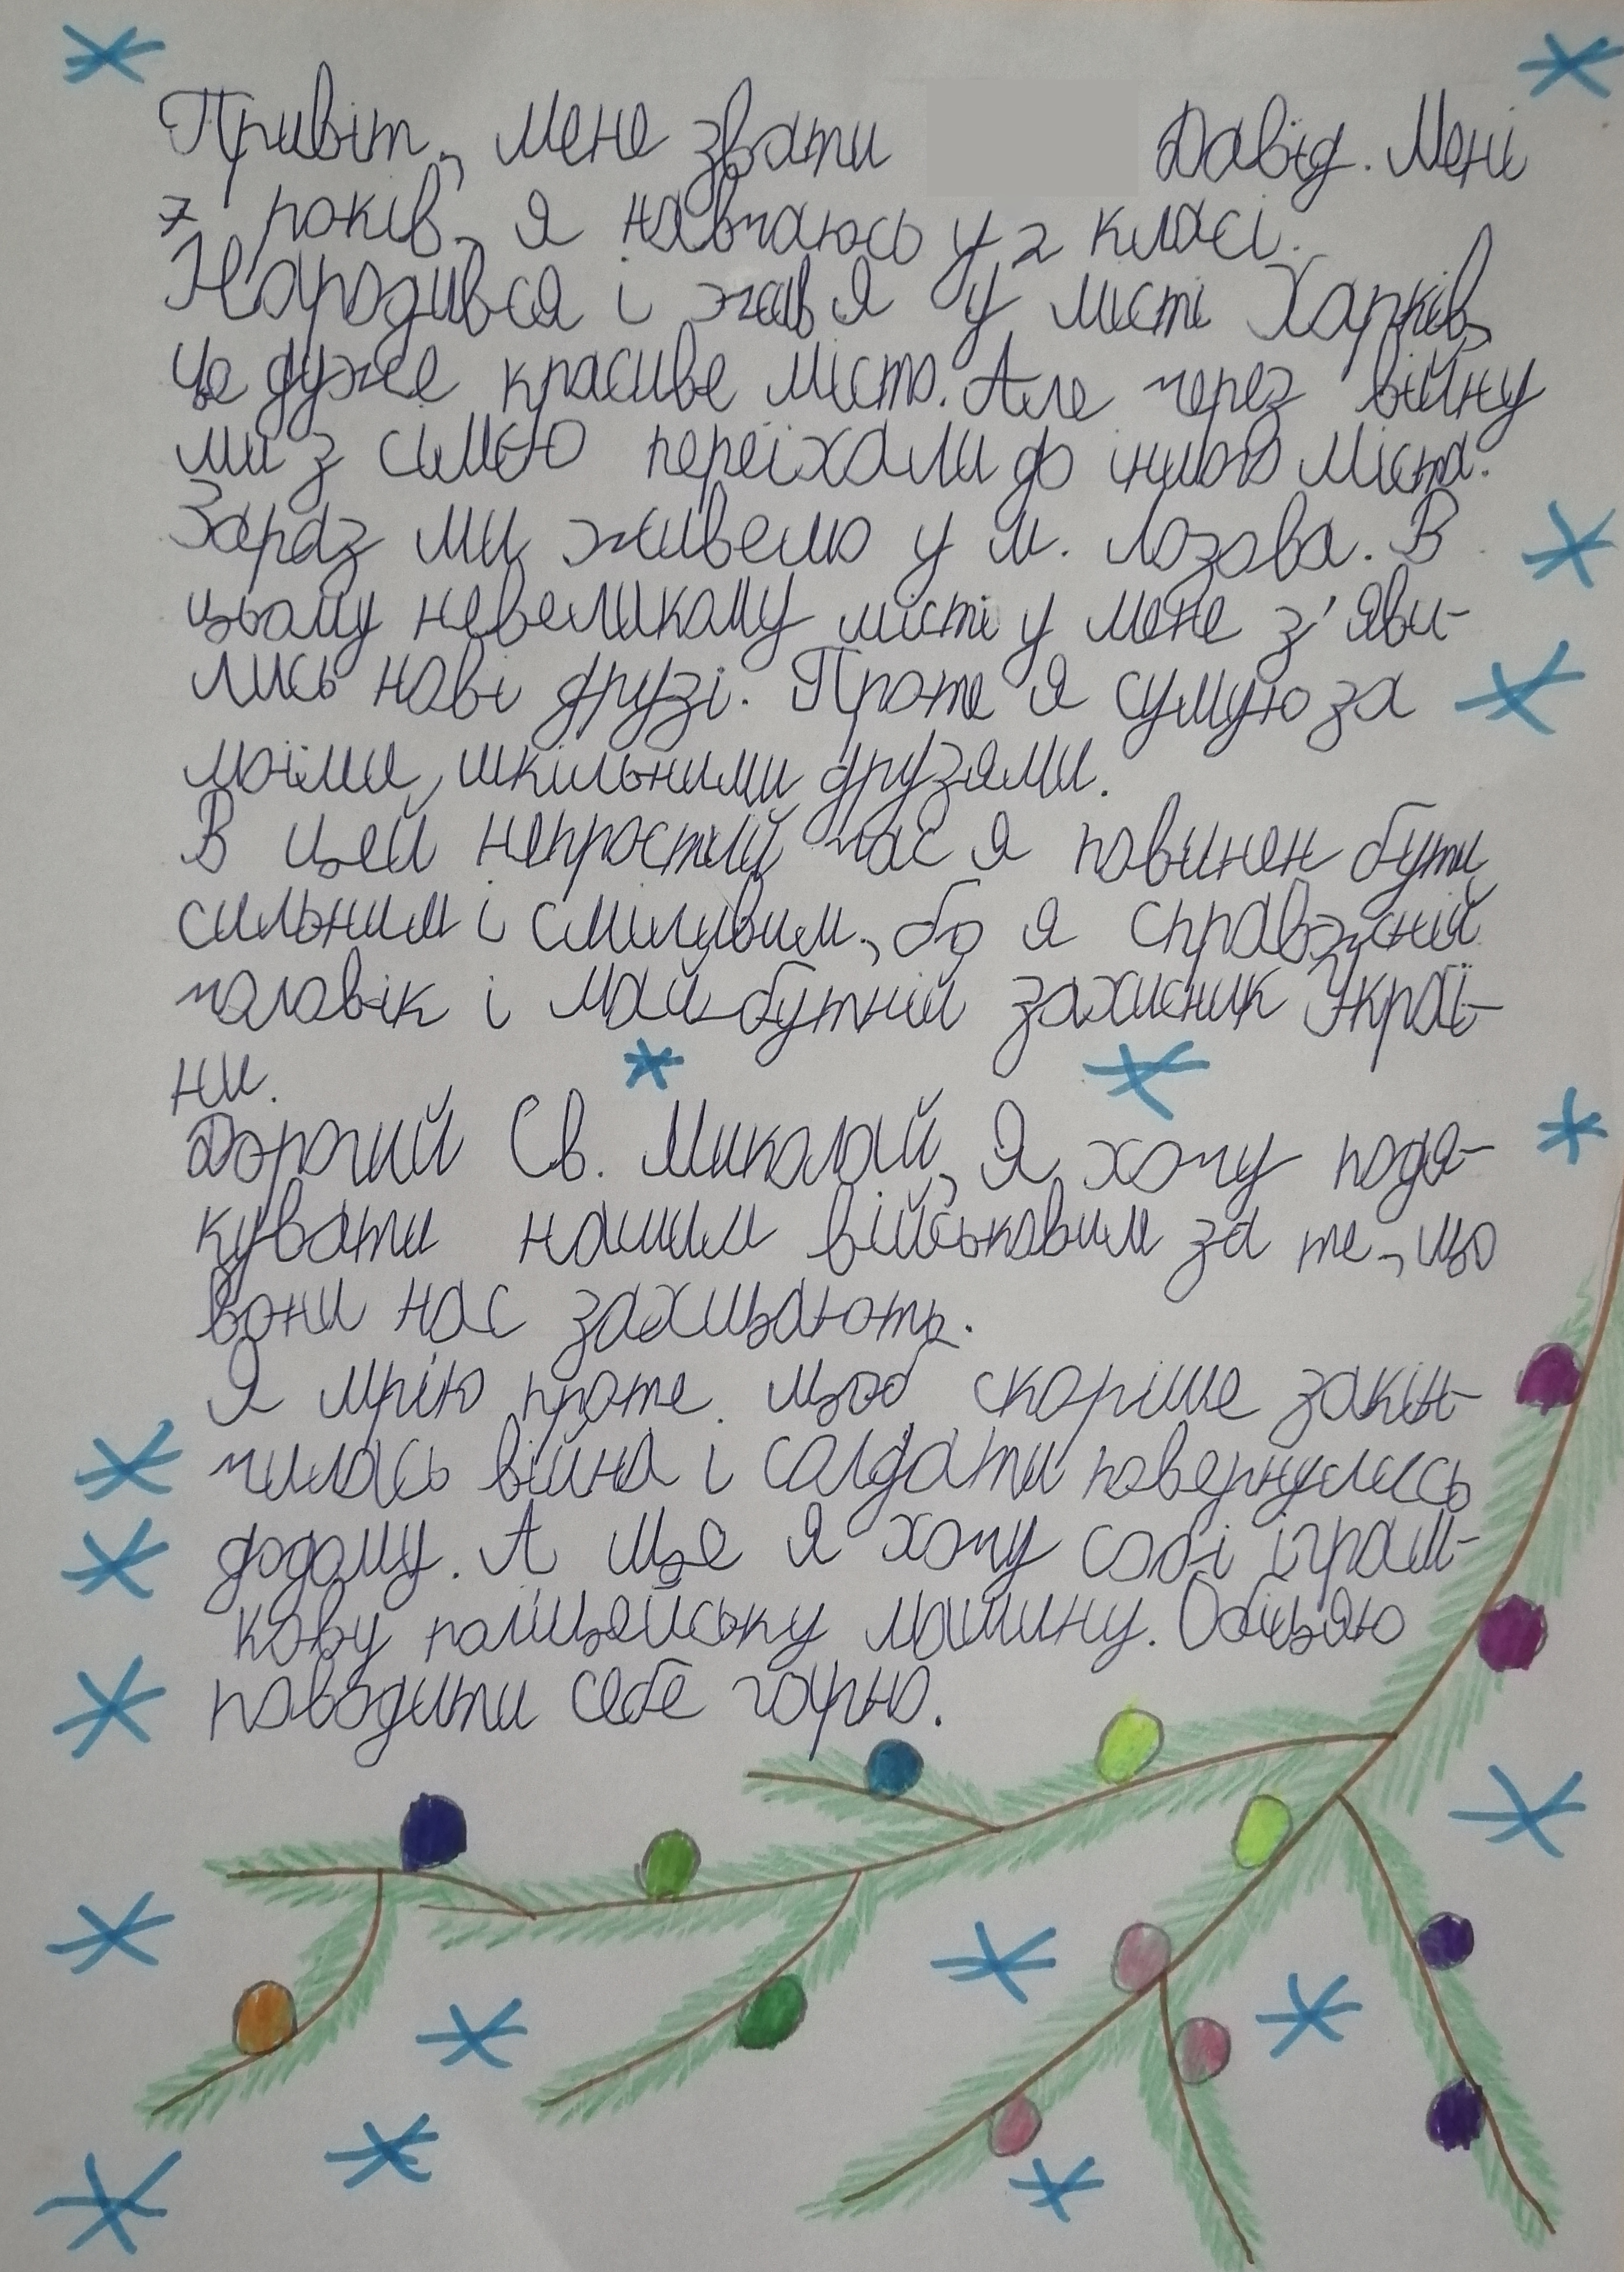 Привіт, мене звати Давід. Мені
7 років, я навчаюсь у 2 класі.
Народився і жив я у місті Харків,
це дуже красиве місто. Але через війну
ми з сім'єю переїхали до іншого міста.
Зараз ми живемо у м. Лозова. В
цьому невеликому місті у мене з'яви-
лись нові друзі. Проте я сумую за
моїми, шкільними друзями.
В цей непростий час я повинен бути
сильним і сміливим, бо я справжній
чоловік і майбутній захисник Украї-
ни.
Дорогий Св. Миколай, Я хочу подя-
кувати нашим військовим за те, що
вони нас захищають.
Я мрію проте. щоб скоріше закін-
чилась війна і солдати повернулись
додому. А ще я хочу собі іграш-
кову поліцейську машину. Обіцяю
поводити себе гарно.